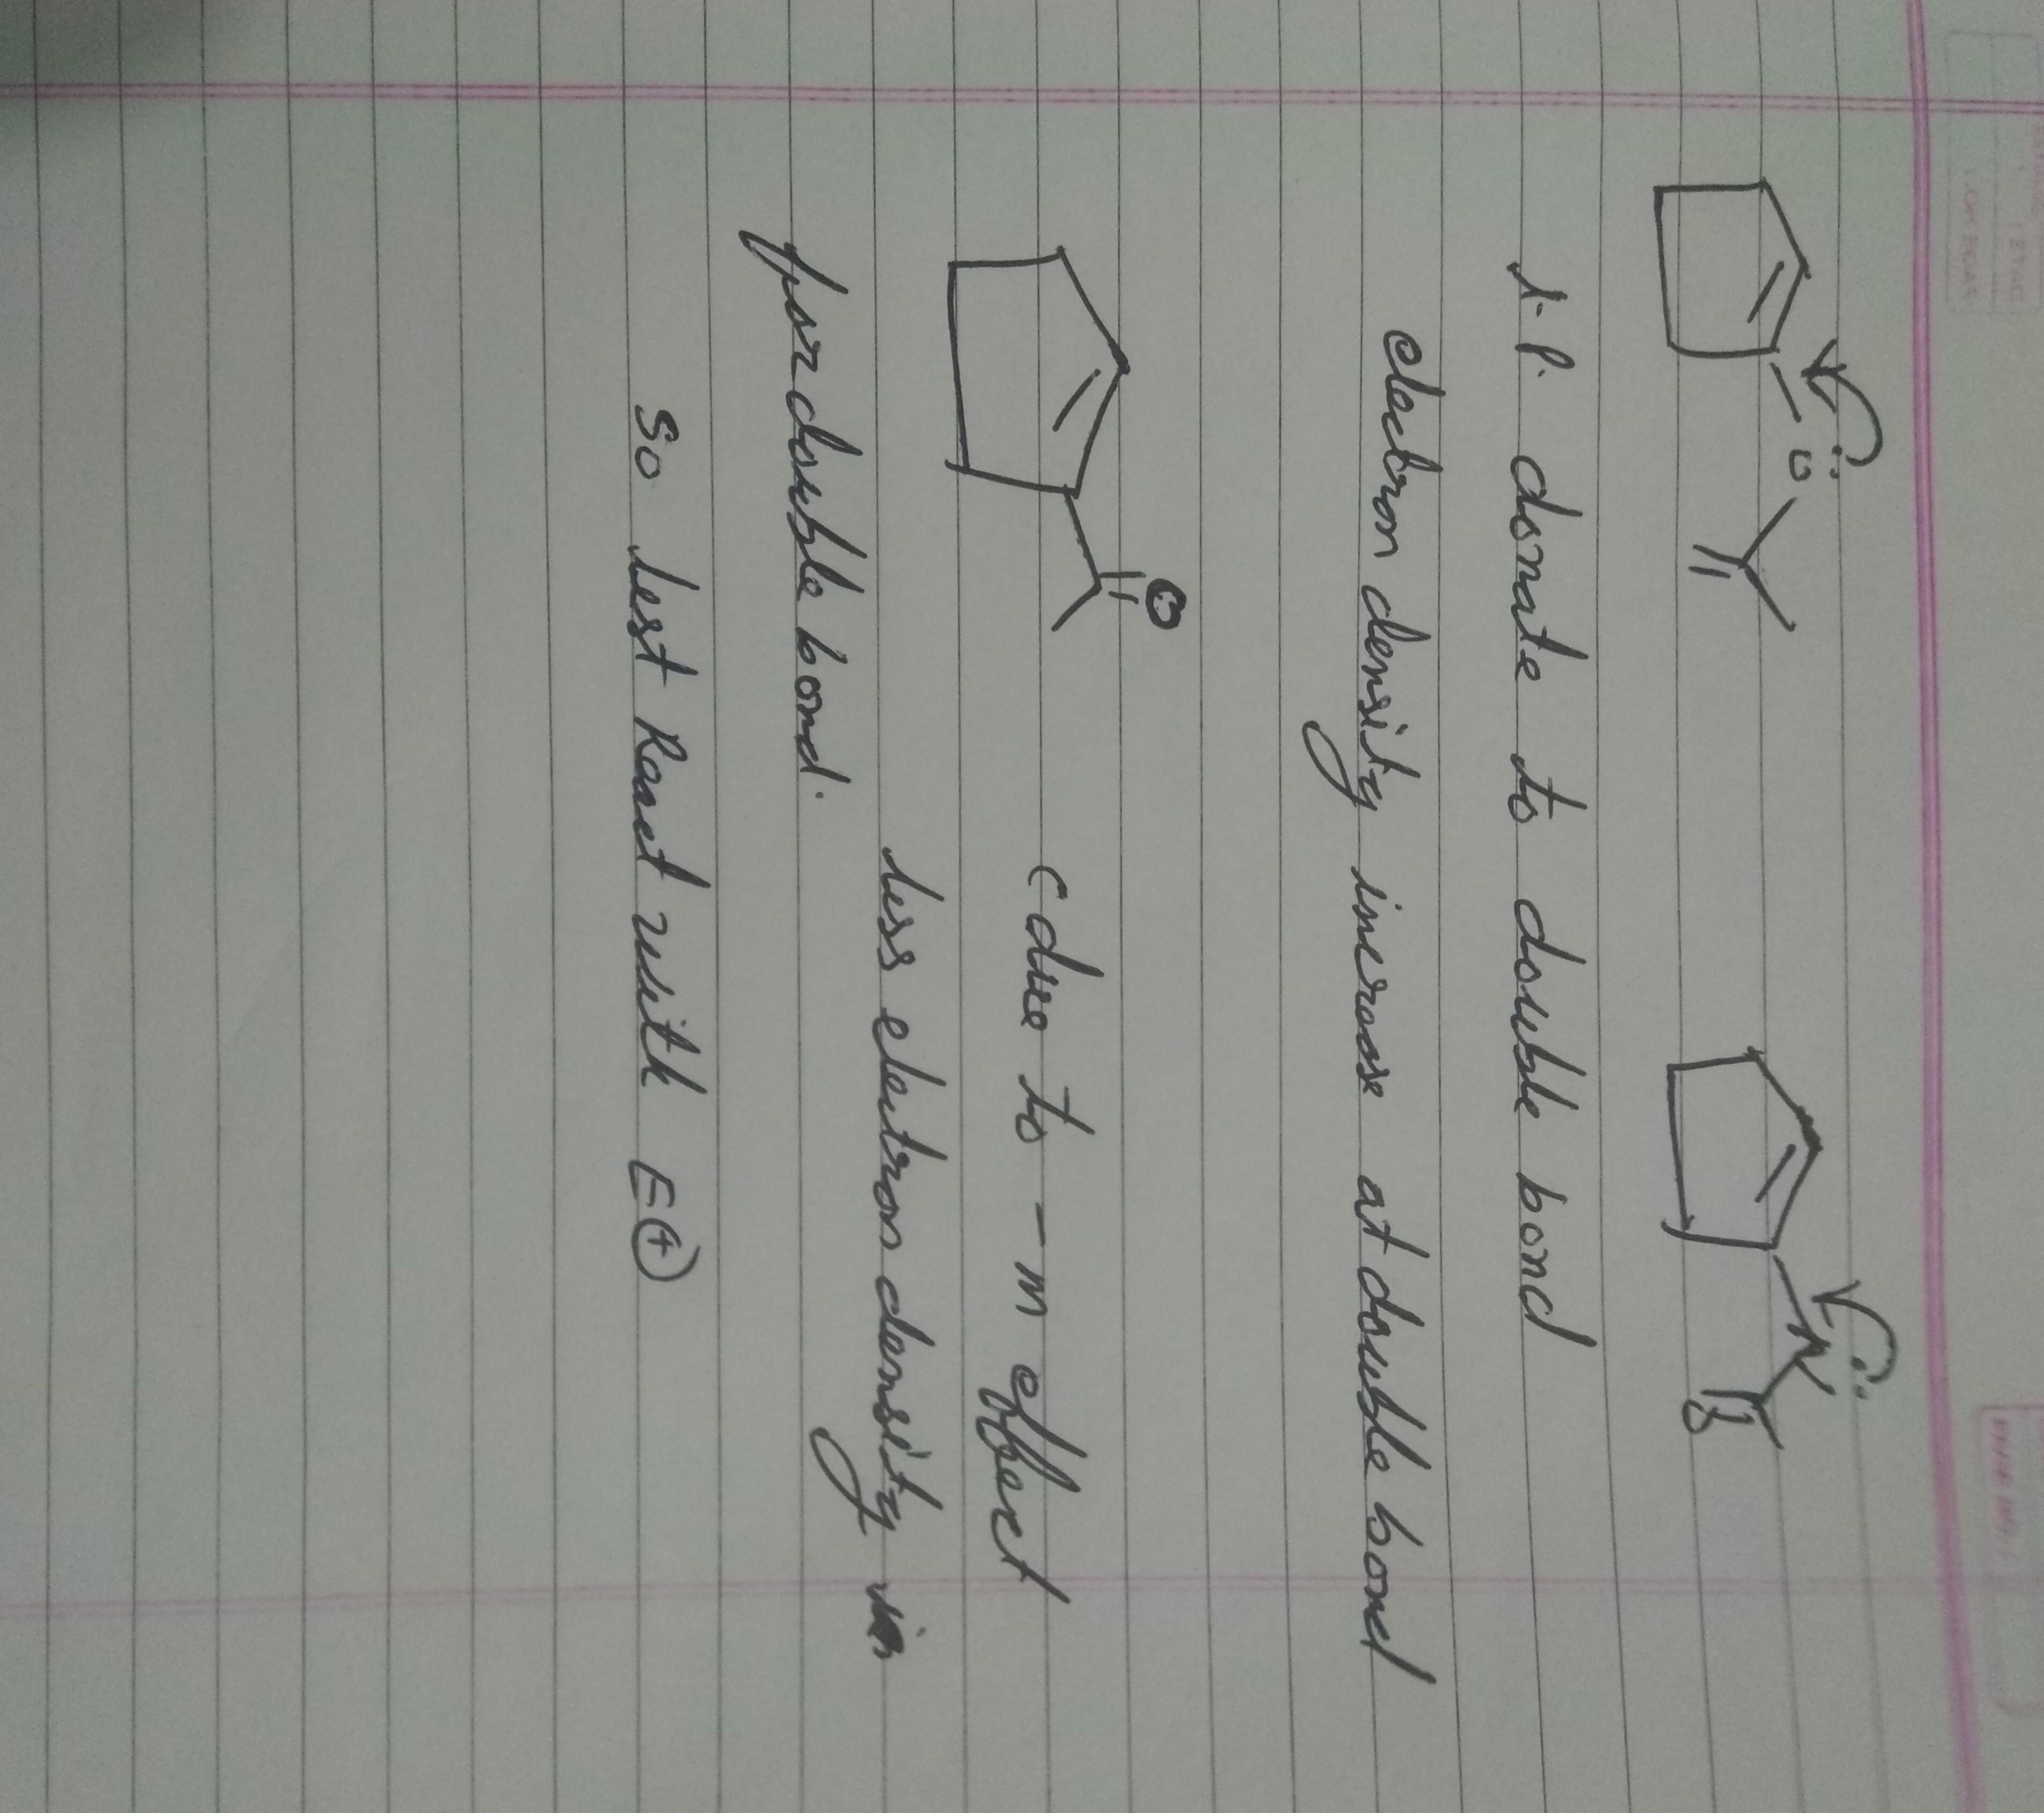 O
N
O
l.p. donate to double bond
electron density increase at double bond
O
(due to -m effect
less electron density in
for double bond.
so lest React with E⊕